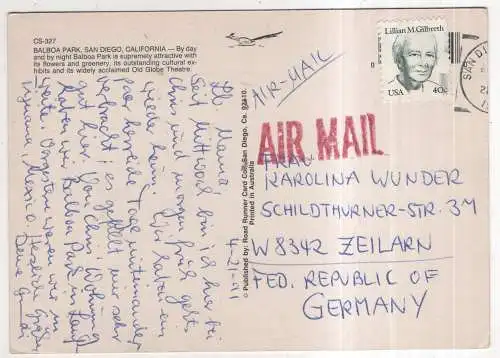 CS-327
BALBOA PARK, SAN DIEGO, CALIFORNIA — By day
and by night Balboa Park is supremely attractive with
its flowers and greenery, its outstanding cultural ex-
hibits and its widely acclaimed Old Globe Theatre.
Lillian M. Gilbreth
USA 40c
SAN DI
AIR-MAIL
AIR MAIL
© Published by: Road Runner Card Co., San Diego, Ca. 92110.
Printed in Australia
4-21-91
Lb. Mama!
Seit Mittwoch bin ich hier bei
Chris und morgen früh geht's
wieder heim. Wir haben ein
paar herrliche Tage miteinander
verbracht; es gefällt mir sehr
gut hier. Von Chris' Wohnung
haben wir Balboa Park in
heute. Vorgestern waren wir in
Tijuana, Mexico. Herzliche Grüße
Deine
FRAU
KAROLINA WUNDER
SCHILDTHURNER-STR. 3M
W 8342 ZEILARN
FED. REPUBLIC OF
GERMANY